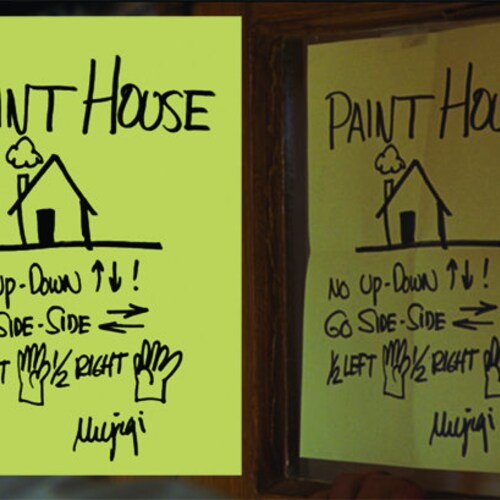 AINT HOUSE
UP-DOWN ↑↓!
SIDE-SIDE
T ½ RIGHT
PAINT HOU
NO UP-DOWN ↑↓!
GO SIDE-SIDE
½ LEFT ½ RIGHT